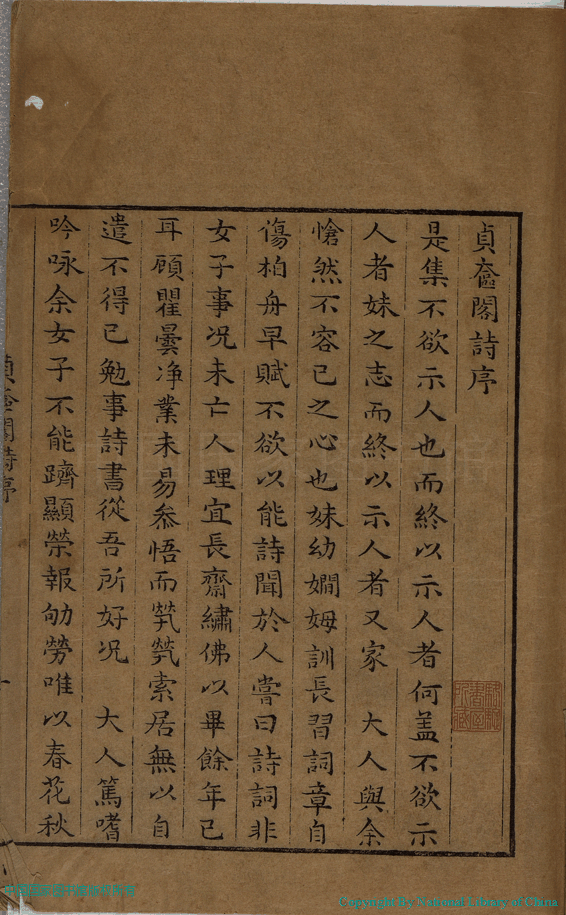 貞奩閣詩序
是集不欲示人也而終以示人者何蓋不欲示
人者妹之志而終以示人者又家　大人與余
愴然不容已之心也妹幼嫺姆訓長習詞章自
傷柏舟早賦不欲以能詩聞於人嘗曰詩詞非
女子事况未亡人理宜長齋繡佛以畢餘年已
耳顧瞿曇净業未易叅悟而煢煢索居無以自
遣不得已勉事詩書從吾所好况　大人篤嗜
吟咏余女子不能躋顯榮報劬勞唯以春花秋
貞奩閣詩序
一
Copyright by National Library of China